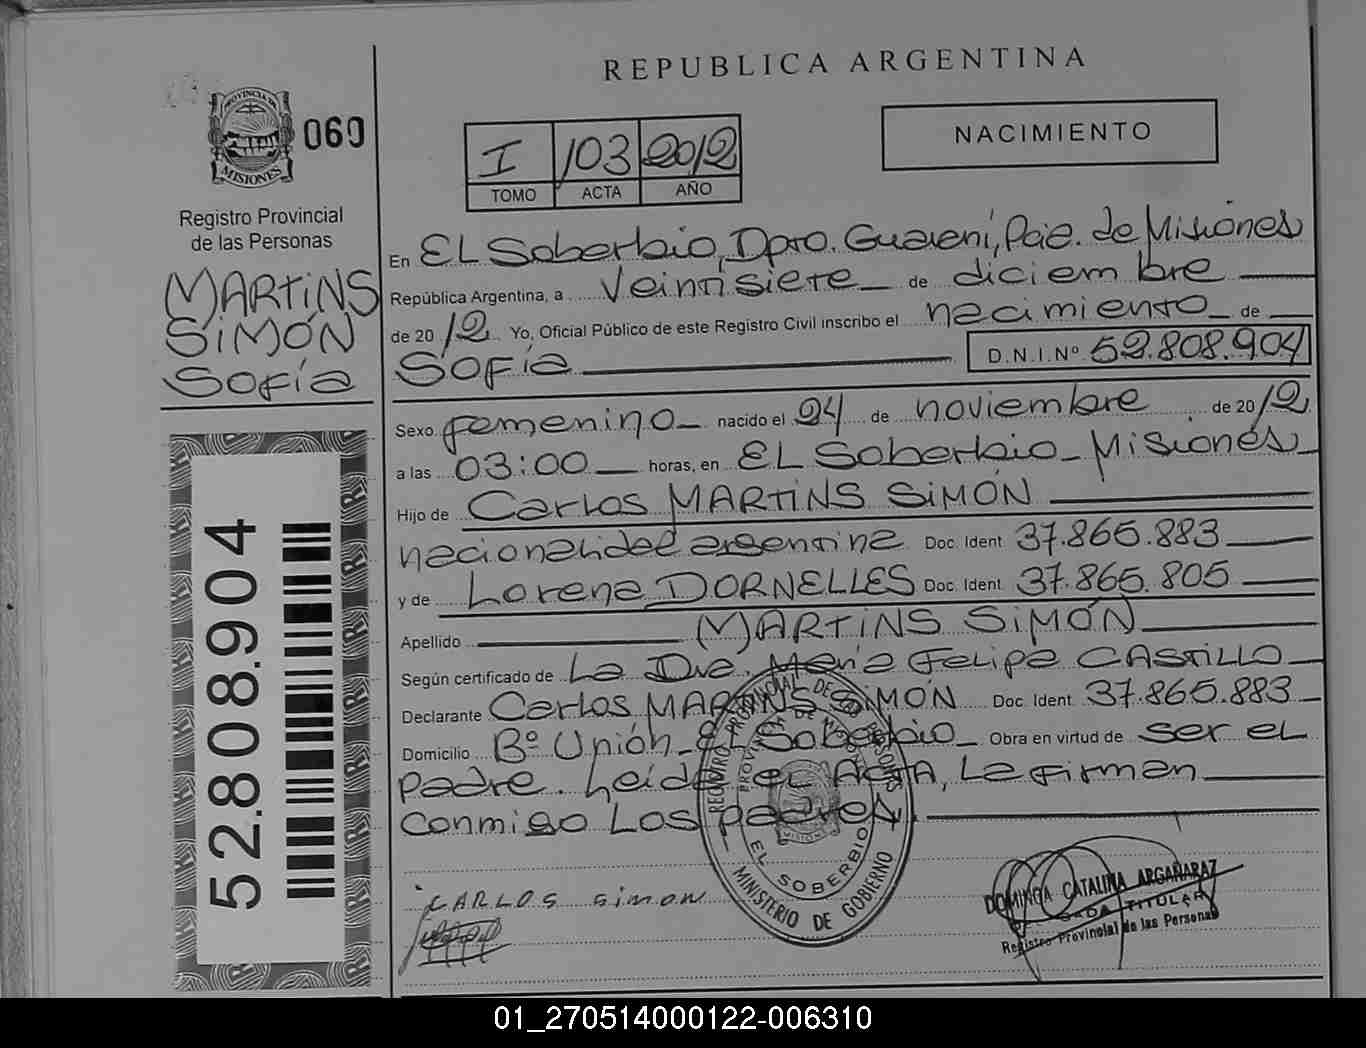 REPUBLICA ARGENTINA
PROVINCIA DE
MISIONES
060
Registro Provincial
de las Personas
MARTINS
SIMÓN
Sofía
52.808.904
I 103 2012
TOMO ACTA AÑO
NACIMIENTO
En EL Soberbio, Dpto. Guaraní, Pcia. de Misiones
República Argentina, a Veintisiete de diciembre
de 2012 Yo, Oficial Público de este Registro Civil inscribo el nacimiento de
Sofía D.N.I.Nº 52.808.904
Sexo femenino nacido el 24 de noviembre de 2012
a las 03:00 horas, en EL Soberbio - Misiones
Hijo de Carlos MARTINS SIMÓN
nacionalidad argentina Doc. Ident 37.865.883
y de Lorena DORNELLES Doc. Ident. 37.865.805
Apellido MARTINS SIMÓN
Según certificado de La Dra. María Felipa CASTILLO
Declarante Carlos MARTINS SIMÓN Doc. Ident. 37.865.883
Domicilio Bº Unión - EL Soberbio Obra en virtud de ser el
padre. Leída el ACTA, La firman
conmigo Los padres.
REGISTRO PROVINCIAL DE LAS PERSONAS
PROVINCIA DE MISIONES
EL SOBERBIO
MINISTERIO DE GOBIERNO
CARLOS simon
DOMINGA CATALINA ARGAÑARAZ
TITULAR
Registro Provincial de las Personas
01_270514000122-006310